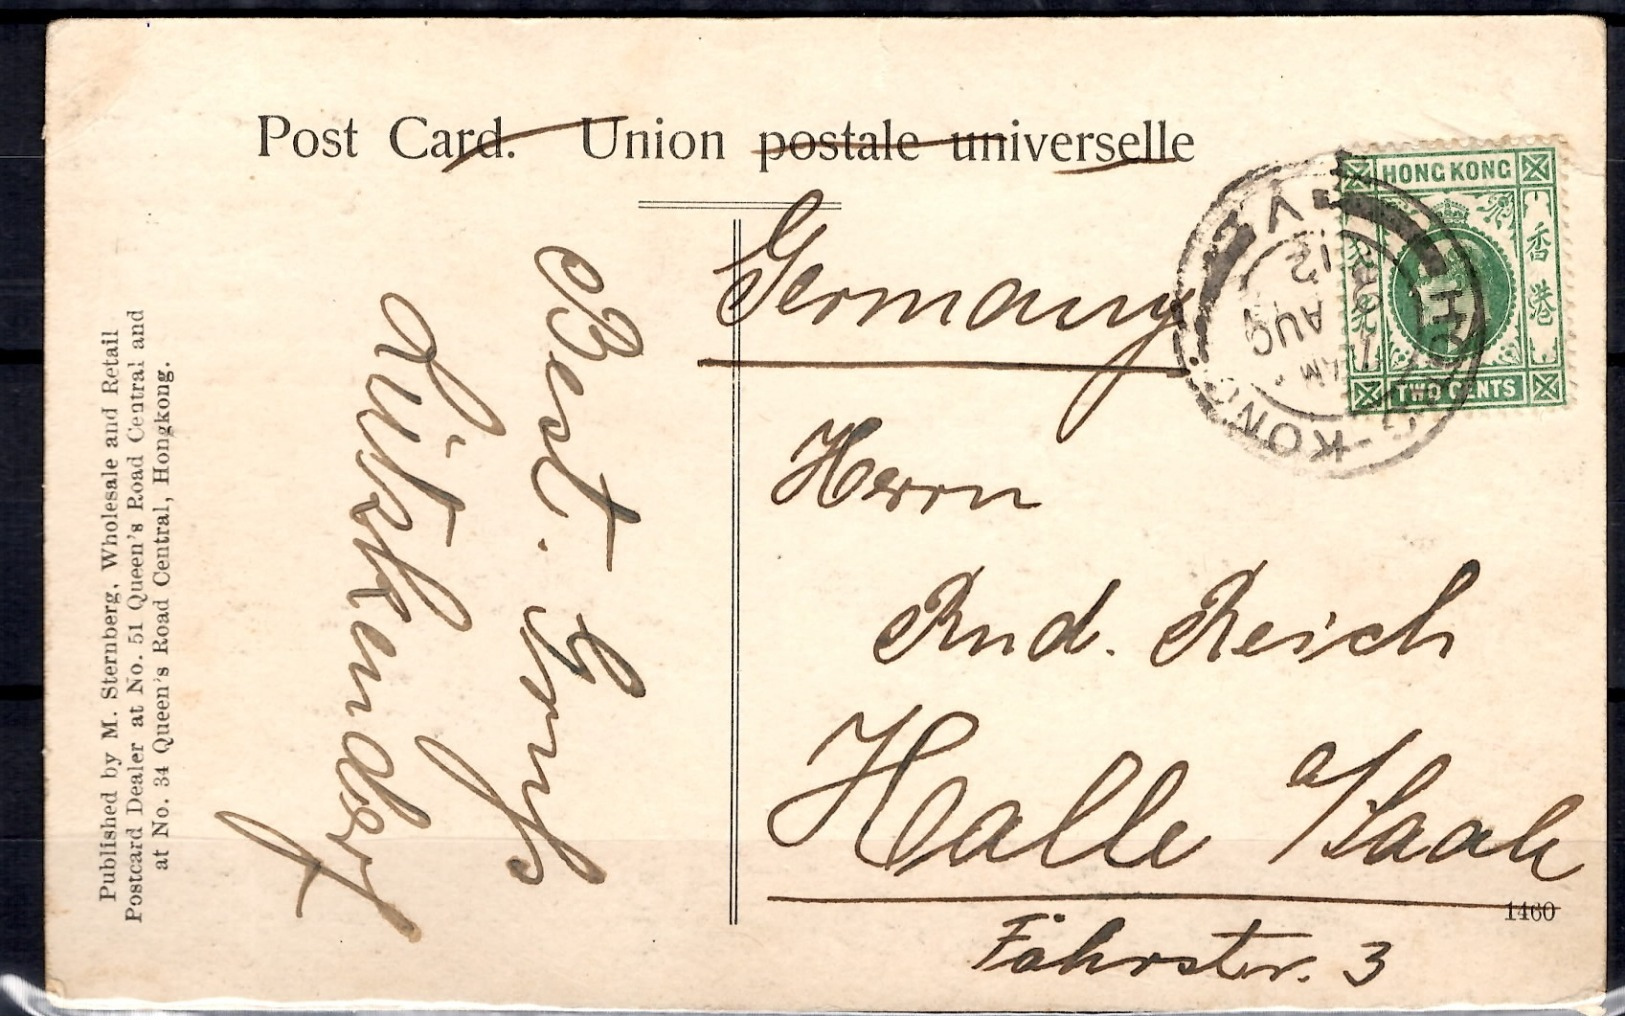 Post Card. Union postale universelle
HONG KONG
香港
TWO CENTS
HONG-KONG
AM
AUG
12
Germany
Herrn
Rud. Reich
Halle a/Saale
Fährstr. 3
1460
Best. Gruß
Published by M. Sternberg, Wholesale and Retail
Postcard Dealer at No. 51 Queen's Road Central and
at No. 34 Queen's Road Central, Hongkong.